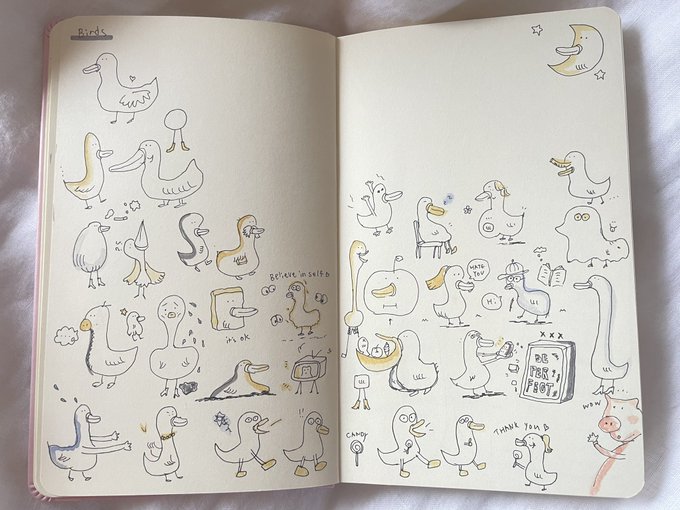 Birds
Believe in self
it's ok
HATE
YOU
Hi!
xxx
BE
PER
FECT
WOW
CANDY
THANK YOU